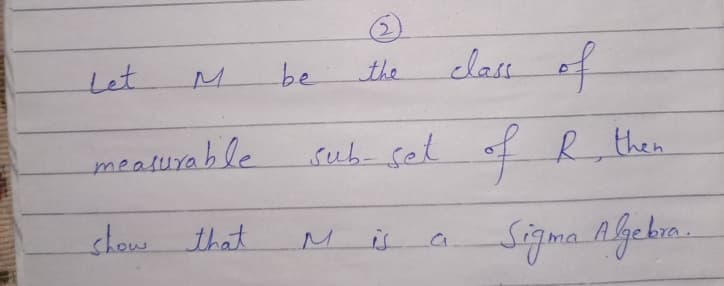 ②
Let M be the class of
measurable sub-set of R, then
show that M is a Sigma Algebra.